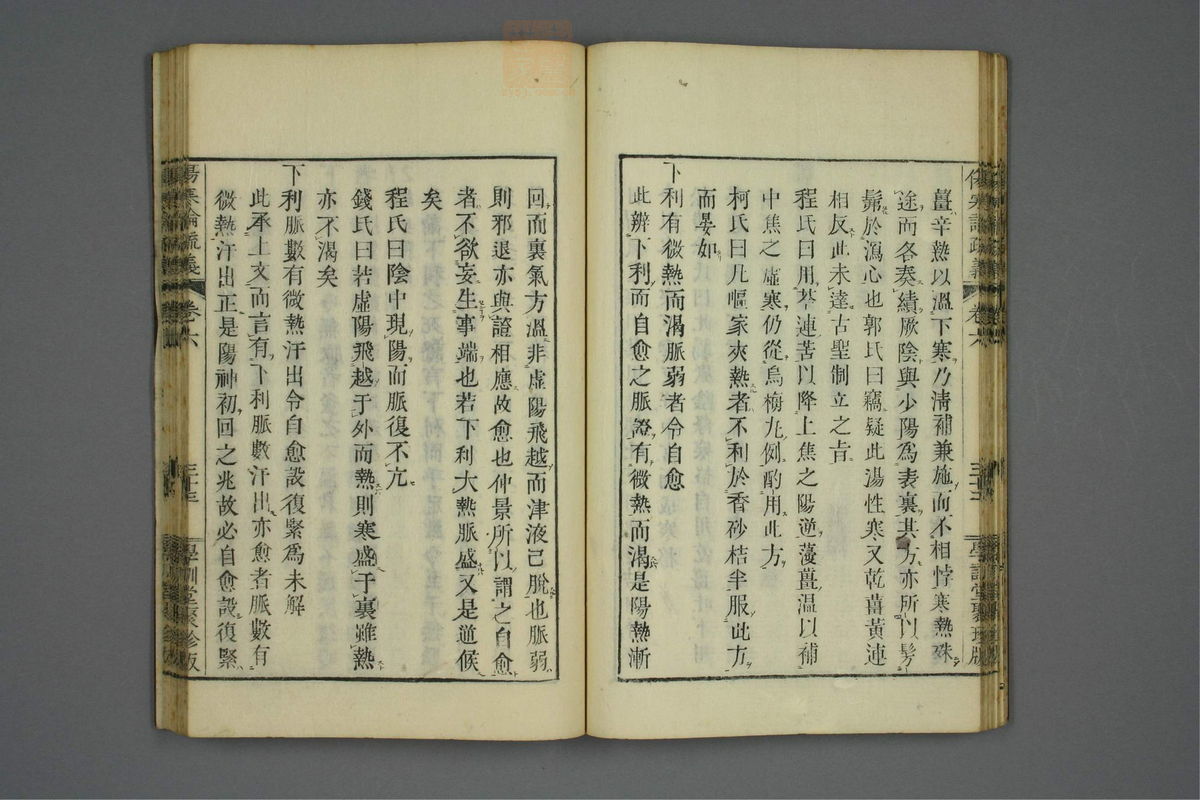 薑辛熱以溫下寒乃淸補兼施而不相悖寒熱殊
途而各奏績厥陰與少陽爲表裏其方亦所以髣
髴於瀉心也郭氏曰竊疑此湯性寒又乾薑黃連
相反此未達古聖制立之旨
程氏曰用芩連苦以降上焦之陽逆薓薑温以補
中焦之虛寒仍從烏梅丸例酌用此方
柯氏曰凡嘔家夾熱者不利於香砂桔半服此方
而晏如
下利有微熱而渴脈弱者令自愈
此辨下利而自愈之脈證有微熱而渴是陽熱漸
傷寒論疏義
卷六
三十三
學訓堂聚珍版
回而裏氣方溫非虛陽飛越而津液已脫也脈弱
則邪退亦與證相應故愈也仲景所以謂之自愈
者不欲妄生事端也若下利大熱脈盛又是逆候
矣
程氏曰陰中現陽而脈復不亢
錢氏曰若虛陽飛越于外而熱則寒盛于裏雖熱
亦不渴矣
下利脈數有微熱汗出令自愈設復緊爲未解
此承上文而言有下利脈數汗出亦愈者脈數有
微熱汗出正是陽神初回之兆故必自愈設復緊
傷寒論疏義
卷六
三十三
學訓堂聚珍版